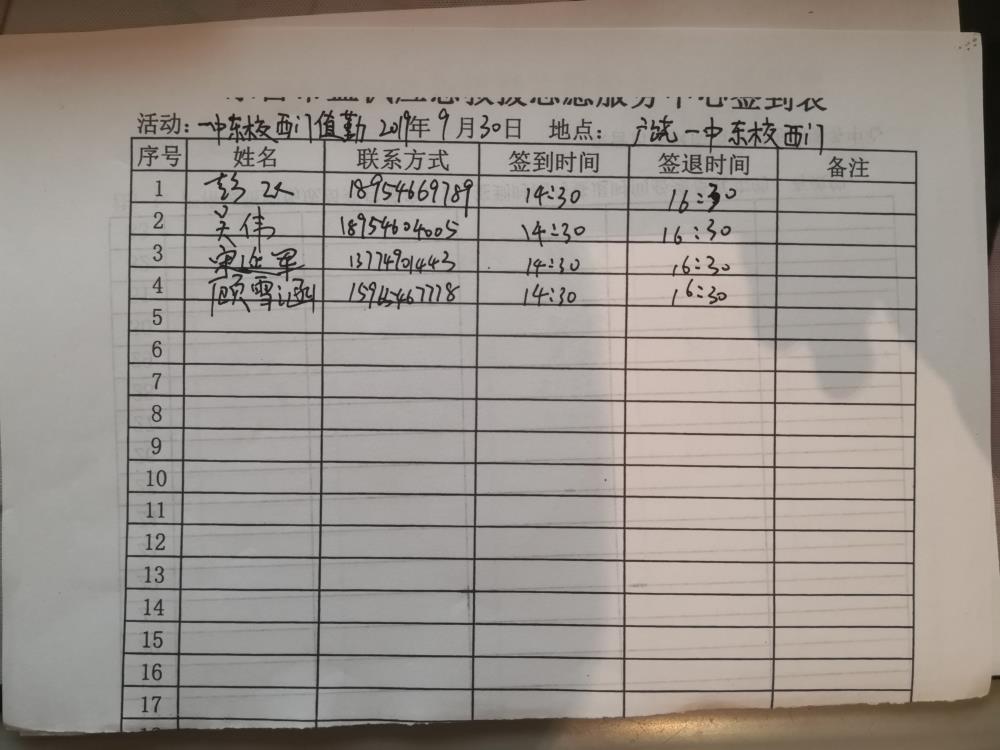 应急救援志愿服务中心签到表
活动: 一中东校西门值勤 2019年9月30日 地点: 广饶一中东校西门
序号 姓名 联系方式 签到时间 签退时间 备注
1 彭 18954669789 14:30 16:30
2 吴伟 18954604005 14:30 16:30
3 13774901443 14:30 16:30
4 顾雪涵 15965467778 14:30 16:30
5
6
7
8
9
10
11
12
13
14
15
16
17